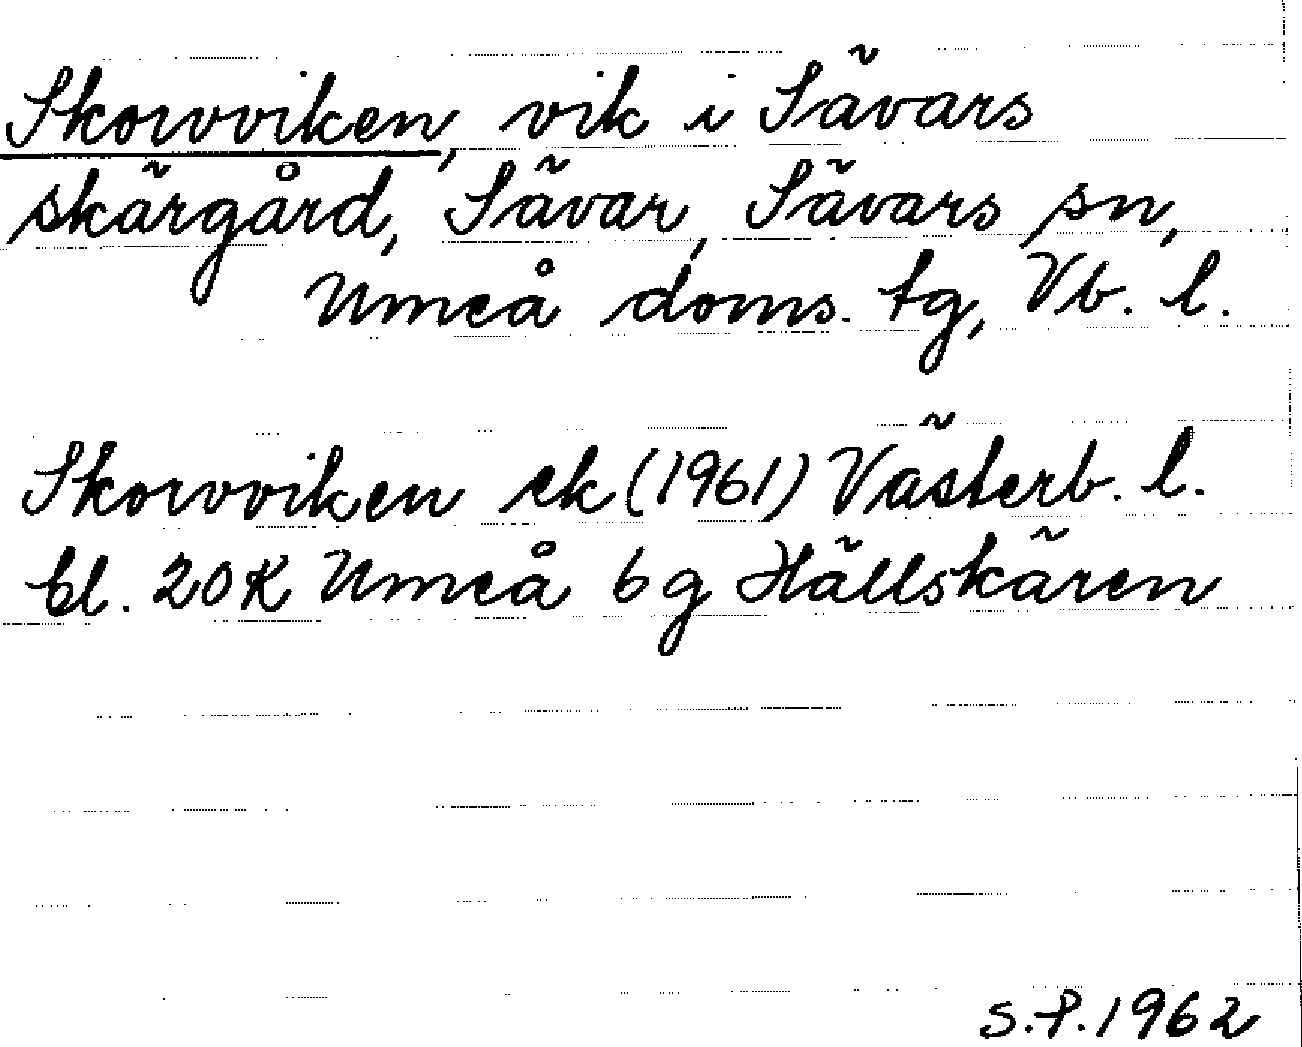 Skorvviken, vik i Sävars
skärgård, Sävar, Sävars sn,
Umeå doms. tg, Vb. l.
Skorvviken ek (1961) Västerb. l.
bl. 20K Umeå 6g Hällskären
S.P. 1962